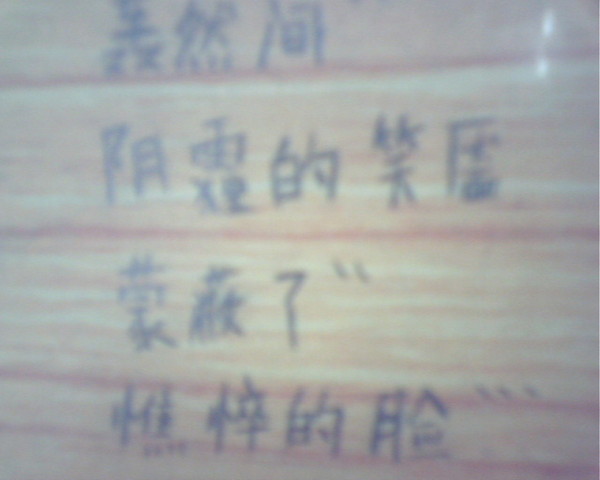 然间
阴霾的笑靥
蒙蔽了``
憔悴的脸```